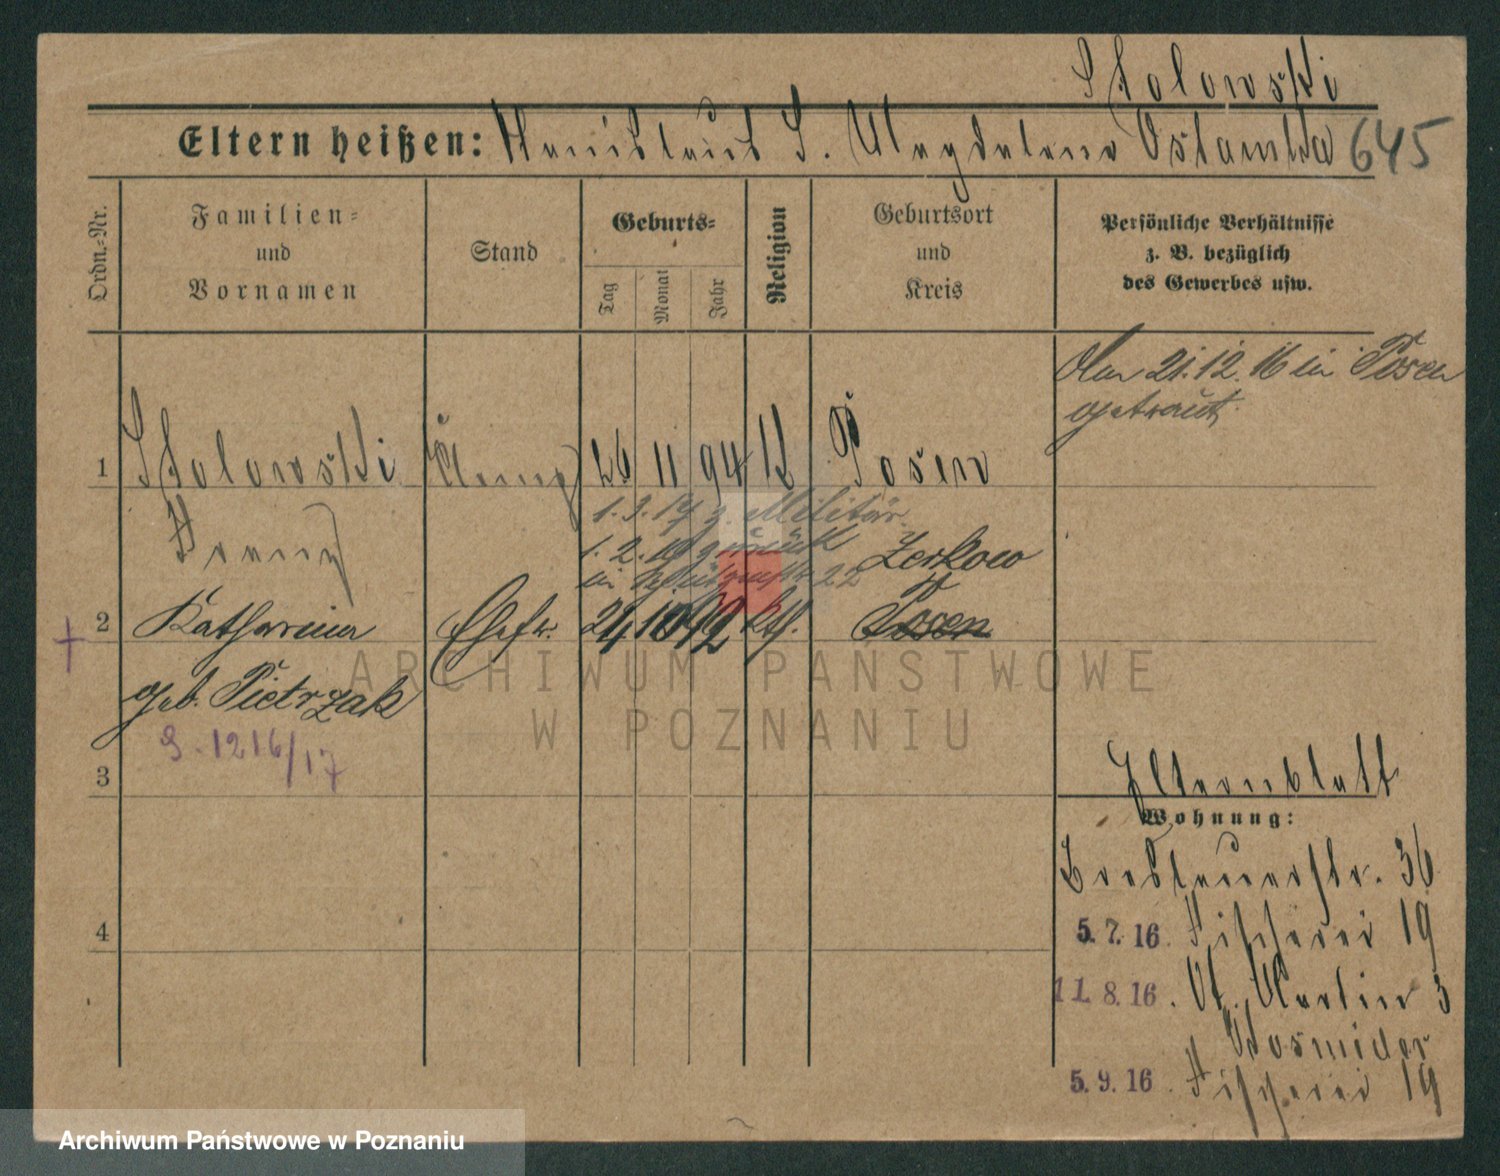 Stolowski
Eltern heißen: Stanislaus S. Magdalena Ostamska 645
Ordn.=Nr.
Familien=
und
Vornamen
Stand
Geburts=
Tag
Monat
Jahr
Religion
Geburtsort
und
Kreis
Persönliche Verhältnisse
z. B. bezüglich
des Gewerbes usw.
Am 21.12.16 in Posen
getraut
1 Stolowski 26 11 94 k Posen
Franz
1.3.17 z. Militär
1.2.19 zurück
in 22
Zerkow
2 Katharina Ehefr. 24 10 92 kth. Posen
geb. Pietrzak
S. 1216/17
3
Elternblatt
Wohnung:
Breslauerstr. 36
4
5.7.16 Fischerei 19
11.8.16. St. Martin 3
Kosmider
5.9.16. Fischerei 19
ARCHIWUM PAŃSTWOWE
W POZNANIU
Archiwum Państwowe w Poznaniu